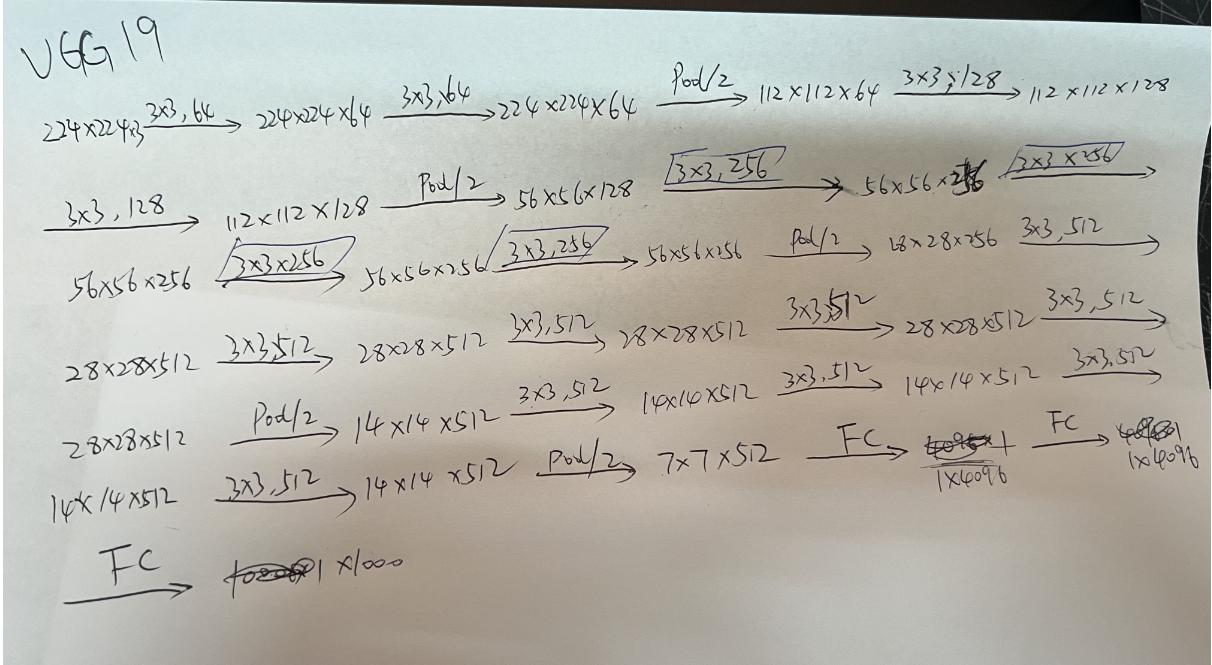 VGG19
224×224×3 3×3, 64 → 224×224×64 3×3, 64 → 224×224×64 Pool/2 → 112×112×64 3×3, 128 → 112×112×128
3×3, 128 → 112×112×128 Pool/2 → 56×56×128 3×3, 256 → 56×56×256 3×3×256 →
56×56×256 3×3×256 → 56×56×256 3×3, 256 → 56×56×256 Pool/2 → 28×28×256 3×3, 512 →
28×28×512 3×3, 512 → 28×28×512 3×3, 512 → 28×28×512 3×3, 512 → 28×28×512 3×3, 512 →
28×28×512 Pool/2 → 14×14×512 3×3, 512 → 14×14×512 3×3, 512 → 14×14×512 3×3, 512 →
14×14×512 3×3, 512 → 14×14×512 Pool/2 → 7×7×512 FC → 1×4096 FC → 1×4096
FC → 1×1000